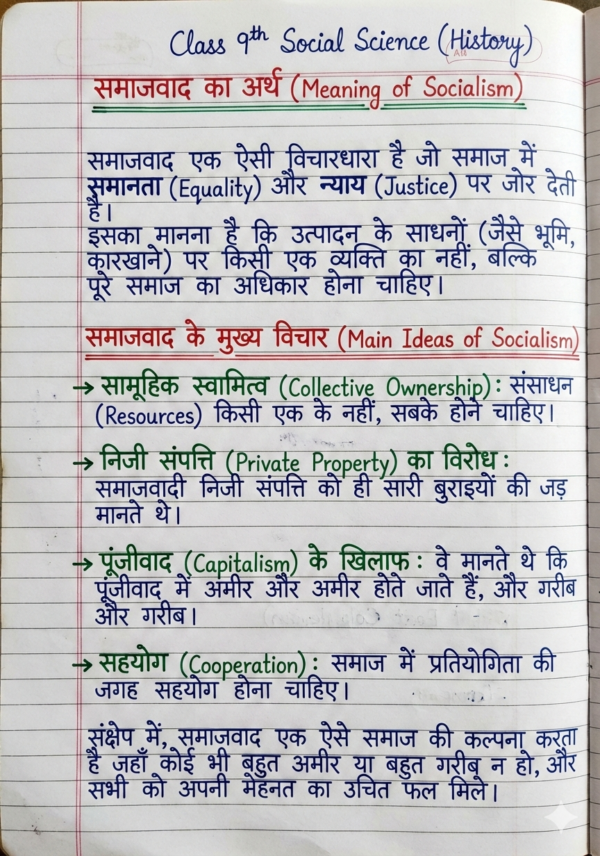 Class 9th Social Science (History)
समाजवाद का अर्थ (Meaning of Socialism)
समाजवाद एक ऐसी विचारधारा है जो समाज में
समानता (Equality) और न्याय (Justice) पर जोर देती
है।
इसका मानना है कि उत्पादन के साधनों (जैसे भूमि,
कारखाने) पर किसी एक व्यक्ति का नहीं, बल्कि
पूरे समाज का अधिकार होना चाहिए।
समाजवाद के मुख्य विचार (Main Ideas of Socialism)
→ सामूहिक स्वामित्व (Collective Ownership): संसाधन
(Resources) किसी एक के नहीं, सबके होने चाहिए।
→ निजी संपत्ति (Private Property) का विरोध:
समाजवादी निजी संपत्ति को ही सारी बुराइयों की जड़
मानते थे।
→ पूंजीवाद (Capitalism) के खिलाफ: वे मानते थे कि
पूंजीवाद में अमीर और अमीर होते जाते हैं, और गरीब
और गरीब।
→ सहयोग (Cooperation): समाज में प्रतियोगिता की
जगह सहयोग होना चाहिए।
संक्षेप में, समाजवाद एक ऐसे समाज की कल्पना करता
है जहाँ कोई भी बहुत अमीर या बहुत गरीब न हो, और
सभी को अपनी मेहनत का उचित फल मिले।